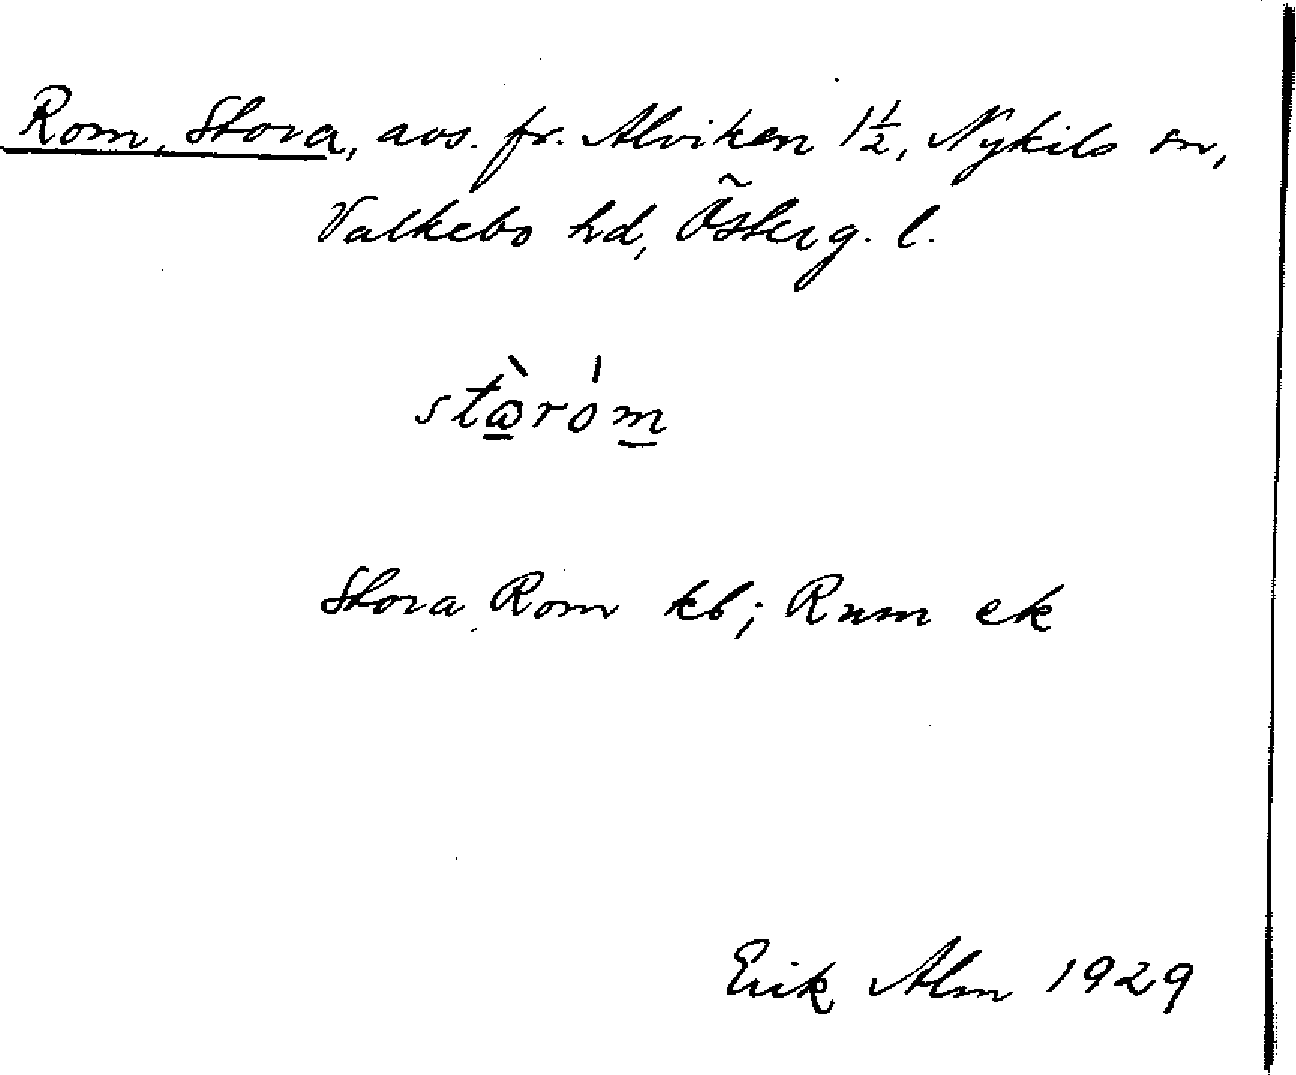 Rom, Stora, avs. fr. Alviken 1½, Nykils sn,
Valkebo hd, Österg. l.
stὼróm
Stora Rom kb; Rum ek
Erik Alm 1929